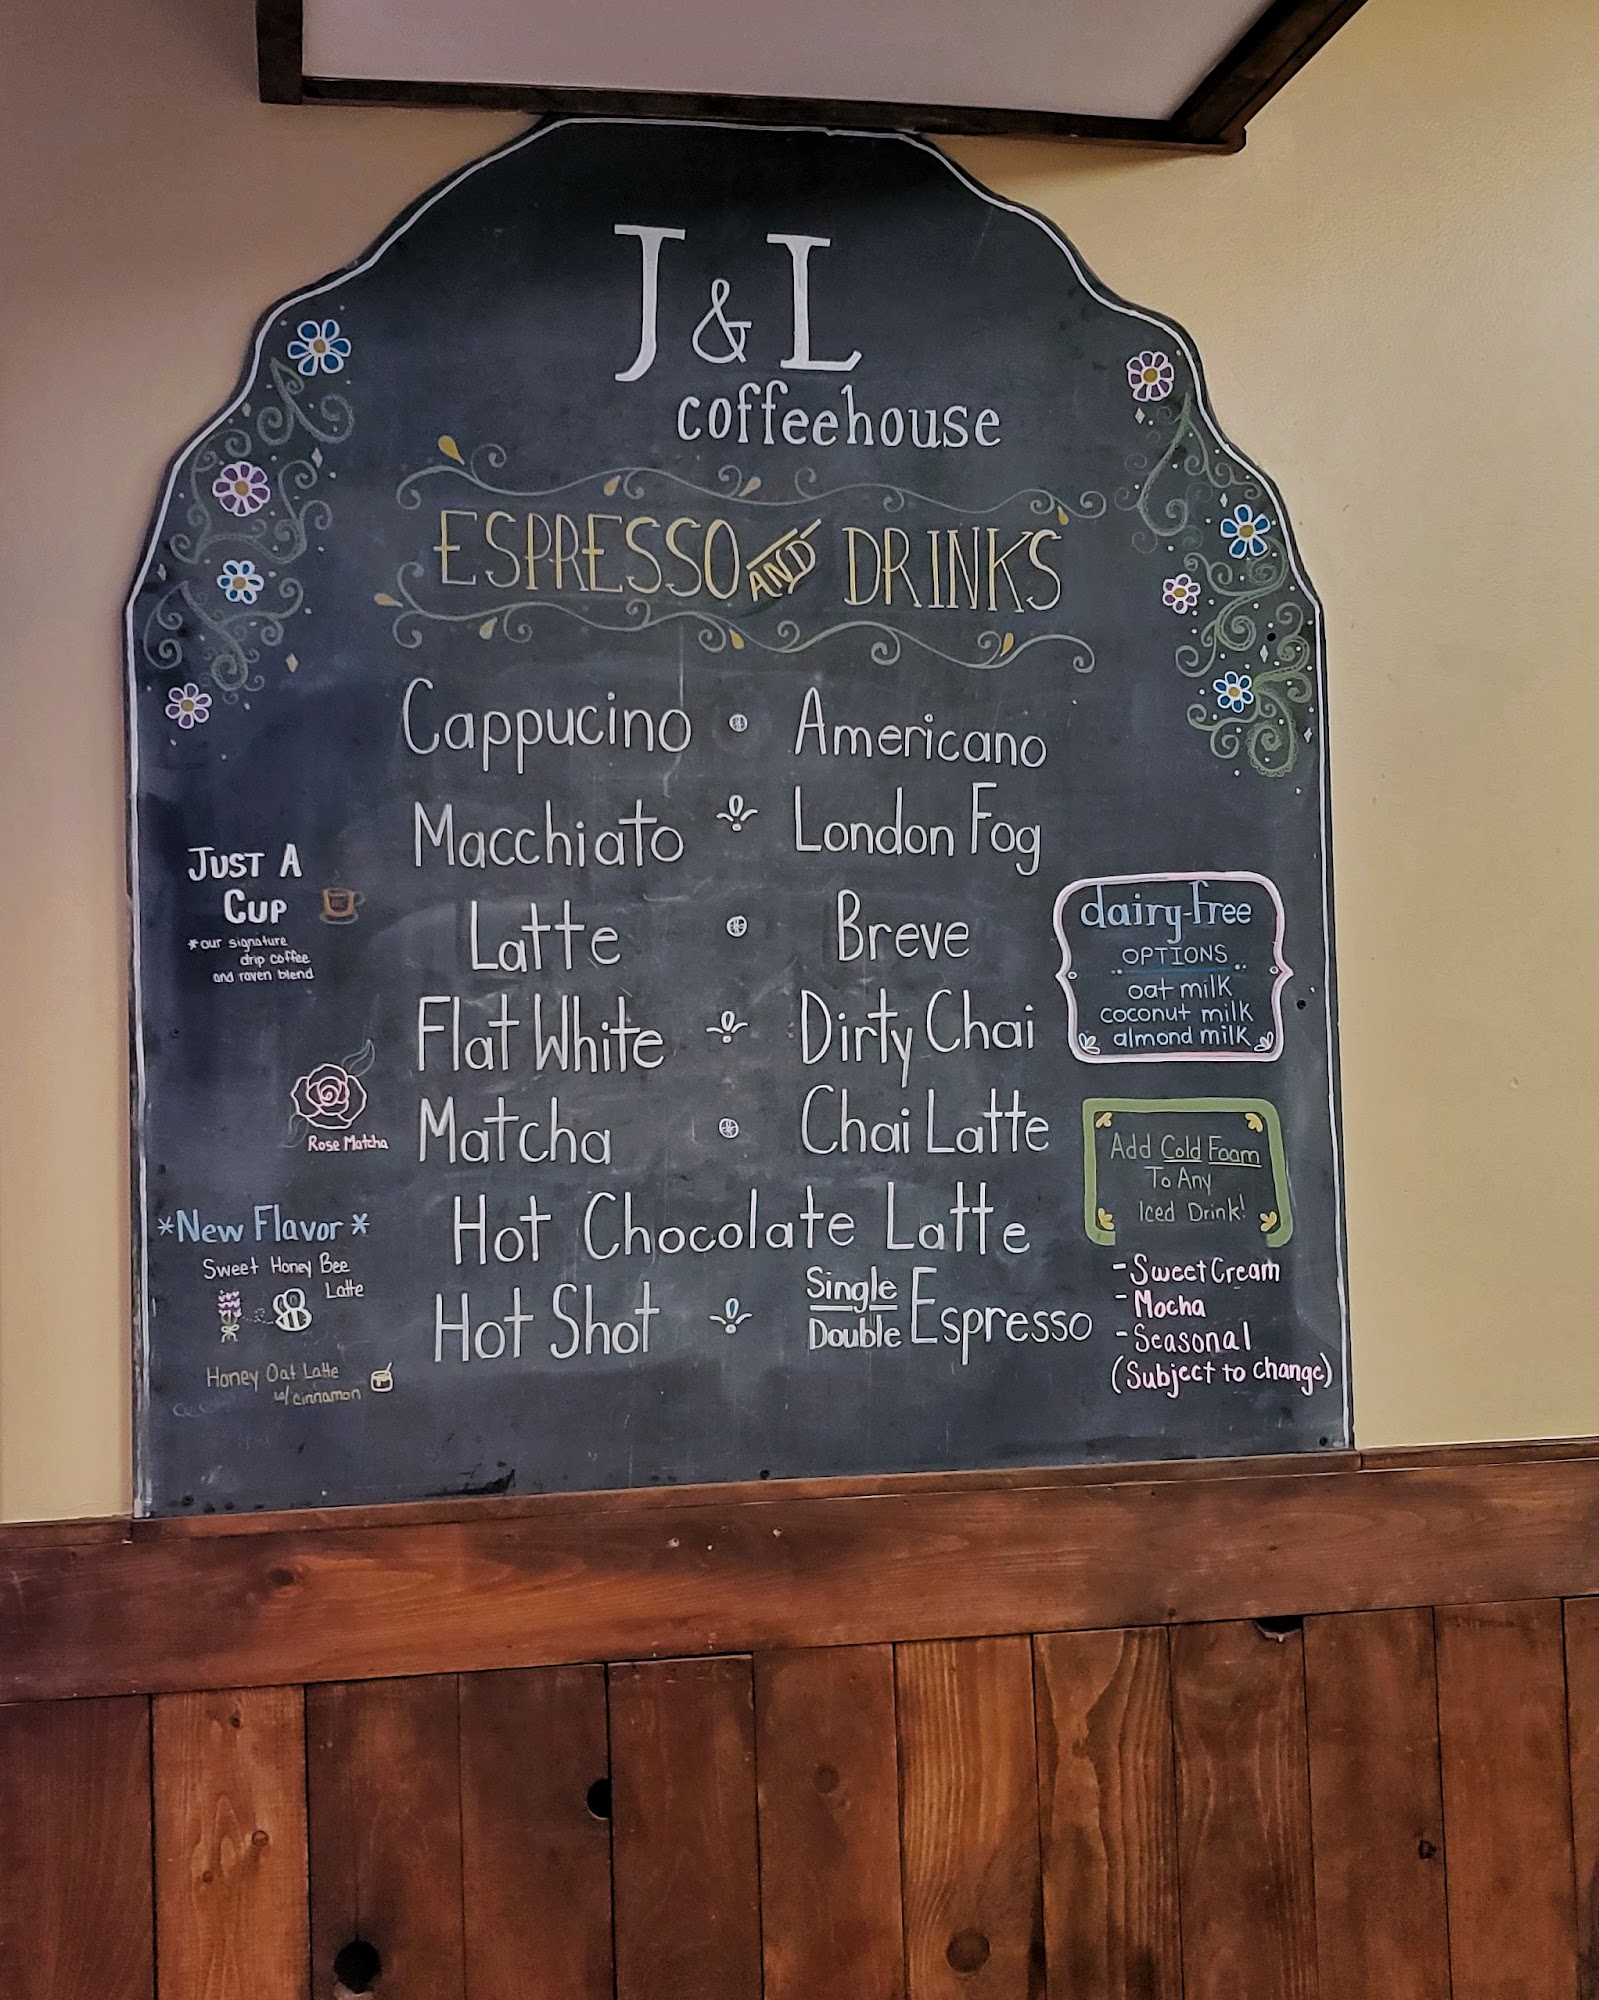 J & L
coffeehouse
ESPRESSO AND DRINKS
Cappucino
Americano
Macchiato
London Fog
Latte
Breve
Flat White
Dirty Chai
Matcha
Chai Latte
Hot Chocolate Latte
Hot Shot
Single
Double Espresso
JUST A
CUP
*our signature
drip coffee
and raven blend
Rose Matcha
*New Flavor*
Sweet Honey Bee
Latte
Honey Oat Latte
w/ cinnamon
dairy-free
OPTIONS
oat milk
coconut milk
almond milk
Add Cold Foam
To Any
Iced Drink!
-Sweet Cream
-Mocha
-Seasonal
(Subject to change)